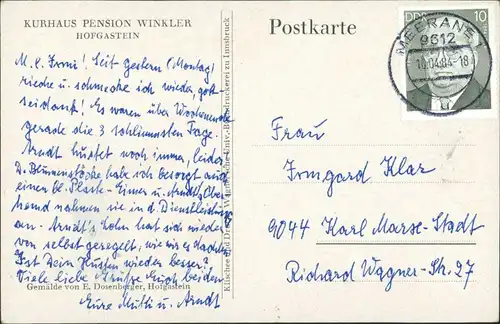 KURHAUS PENSION WINKLER
HOFGASTEIN
M. l. Irmi! Seit gestern (Montag)
rieche u. schmecke ich wieder, gott-
seidank! Es waren über Wochenende
gerade die 3 schlimmsten Tage.
Arndt hustet noch immer, leider
D. Blumenstöcke habe ich besorgt auch
einen bl. Plastik-Eimer u. Arndts Ober-
hemd nahmen sie in d. Dienstleistung
an. Arndts Lohn hat sich wieder
von selbst geregelt, wie wir es dachten
Ist Dein Husten wieder besser?
Viele liebe Grüße Euch beiden
Eure Mutti u. Arndt
Gemälde von E. Dosenberger, Hofgastein
Klischee und Druck: Wagner'sche Univ.-Buchdruckerei zu Innsbruck
Postkarte
DDR 10
MEERANE 1
9612
10.04.84-18
Frau
Irmgard Klar
9044 Karl-Marx-Stadt
Richard Wagner-Str. 27